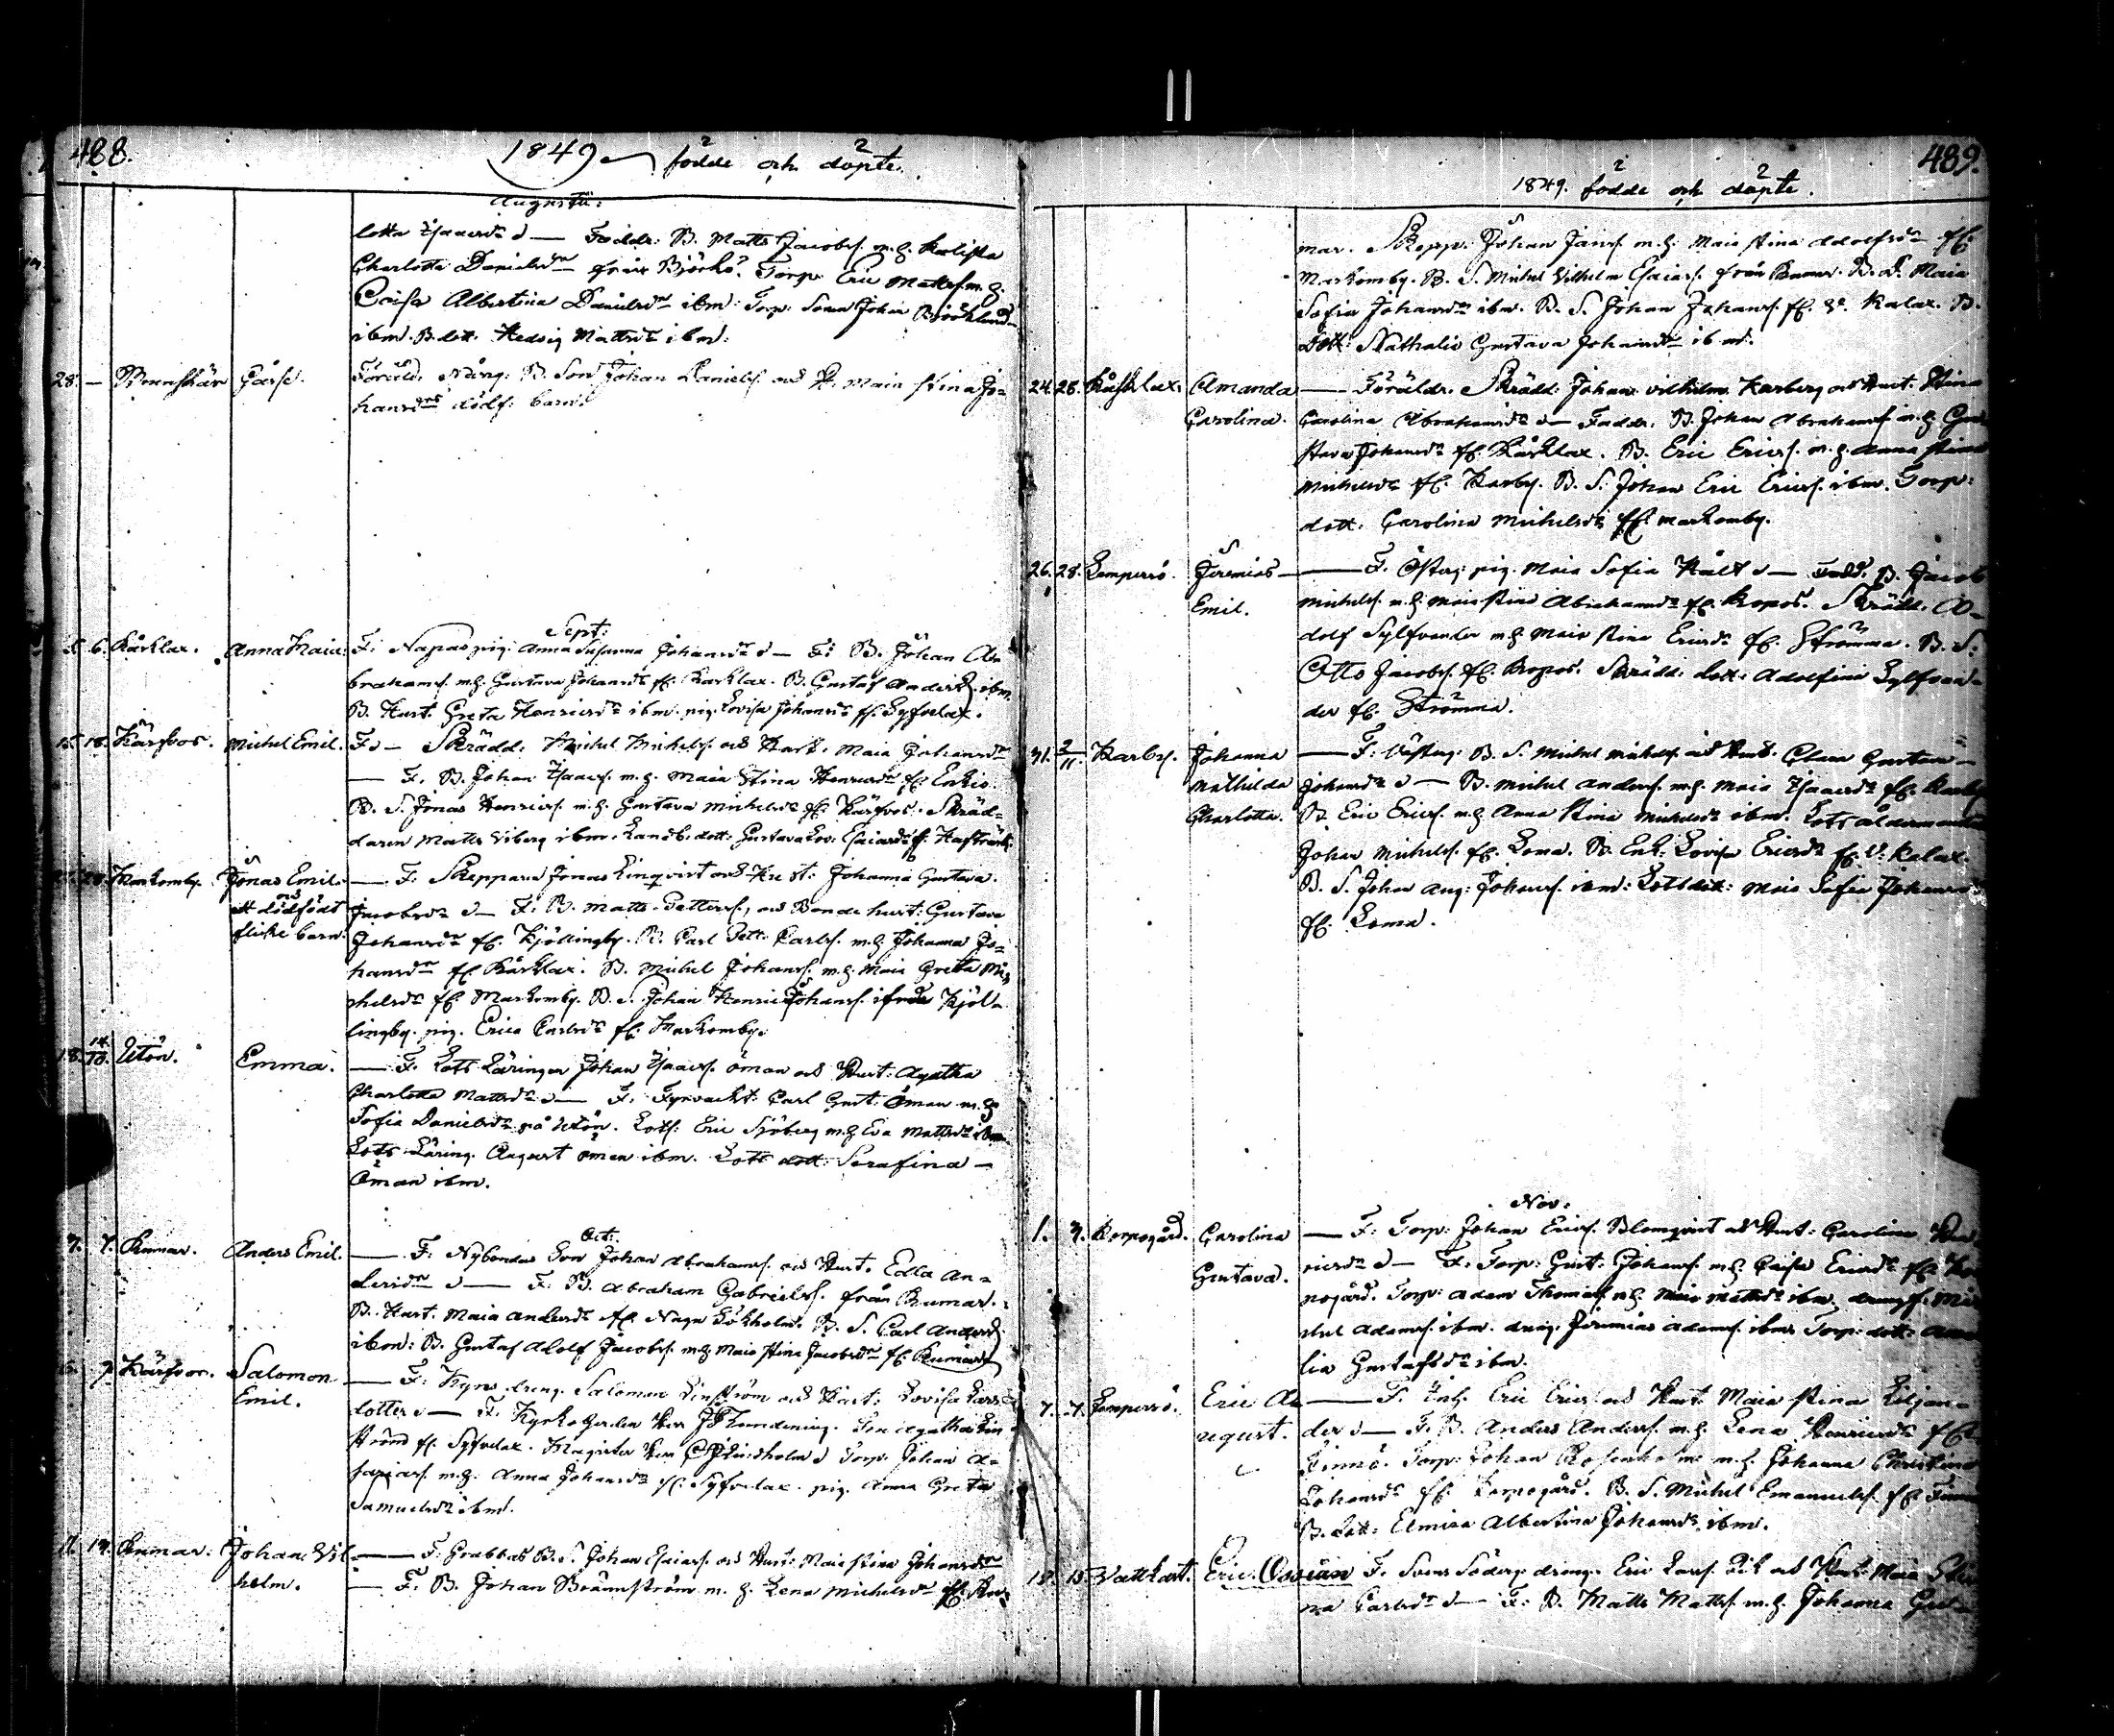 488.
1849 födde och döpte.
Augusti:
lotta Isacsdr — Faddr: B. Matts Jacobss. m.h.
Charlotta Danielsdr från Björkö. Torp. Eric Mattss. m.h.
Albertina Danielsdr ibm. Torp. Sonen Johan Björklund
ibm. B. dott. Hedvig Mattsdr ibm.
28. — Brunskär Gosse. Föräld. B. Son Johan Daniels. och H. Maia Stina Jo-
hansdrs dödf. barn.
Sept:
5. 6. Kårklax. Anna Maia. F: Napas pig. Anna Susanna Johansdr — F: B. Johan Ab-
rahamss. m.h. Gustava Johansdr fr. Kårklax. B. Gustaf Anderss. ibm.
B. Hust. Greta Henricsdr ibm. pig. Lovisa Johansdr fr. Syfvelax.
15. 18. Kärfvos. Michel Emil. F — Skrädd. Michel Michelss. och Hust. Maia Johansdr
— F. B. Johan Isacss. m.h. Maia Stina Henricsdr fr.
B. S. Jonas Henricss. m.h. Gustava Michelsdr fr. Kärfvos. Skräd-
daren Matts Viberg ibm. Landb. dott. Gustava Lov. Esaiasdr fr.
Markomby. Jonas Emil. — F. Skepparen Jonas Linqvist och Hust: Johanna Gustava
och ett dödfödt Jacobsdr — F: B. Matts Petterss., och Bonde hust: Gustava
flicke barn. Johansdr fr. Kjöllingby. B. Carl Pett. Carlss. m.h. Johanna Jo-
hansdr fr. Kårklax. B. Michel Johanss. m.h. Maia Greta Mi-
chelsdr fr. Markomby. B. S. Johan Henric Johanss. ifrån Kjöl-
lingby. pig. Erica Carlsdr fr. Markomby.
18. 14/10. Utön. Emma. — F. Lots Läringen Johan Isacss. Öman och Hust: Agatha
Charlotta Mattsdr — F. Fyrvackt: Carl Gust: Öman m.h.
Sofia Danielsdr på Utön. Lots: Eric Sjöberg m.h. Eva Mattsdr ibm.
Lots Läring. August Öman ibm. Lots dott: Serafina —
Öman ibm.
Oct:
7. Rumar. Anders Emil. — F. Nybondas Son Johan Abrahamss. och Hust. Edla An-
dersdr — F: B. Abraham Gabrielss. från Rumar.
B. Hust. Maia Andersdr fr. Nagu Sökholm. B. S. Carl Anderss.
ibm: B. Gustaf Adolf Jacobss. m.h. Maia Stina Jacobsdr fr. Rumar
6. 7. Kärfvos. Salomon — F: dreng. Salomon Linström och Hust: Lovisa Lars
Emil. dotter — F. Kyrkoherden Herr Lundening.
ström fr. Syfvelax. Magister Herr Lindholm Torp. Johan A-
sariass. m.h. Anna Johansdr fr. Syfvelax. pig. Anna Greta
Samuelsdr ibm.
11. 14. Rumar: Johan Vil — F: Grabbas B. S. Johan Esaiass. och Hust: Maia Stina Johansdr
helm. — F. B. Johan Brännström m.h. Lena Michelsdr fr. Ru-
489.
1849. födde och döpte.
mar. Skepp. Johan Janss. m.h. Maia Stina Adolfsdr fr.
Markomby. B. S. Michel Vilhelm Esaiass. från Rumar. B. D. Maia
Sofia Johansdr ibm. B. S. Johan Johanss. fr. V. Kalax. B.
Dott: Nathalia Gustava Johansdr ibm.
24. 28. Kårklax. Amanda — Föräldr. Skrädd. Johan Vilhelm Karberg och Hust. Stina
Carolina. Carolina Abrahamsdr — Faddr. B. Johan Abrahamss. m.h. Gu-
stava Johansdr fr. Kårklax. B. Eric Ericss. m.h. Anna Stina
Michelsdr fr. Karby. B. S. Johan Eric Ericss. ibm. Torp:
dott. Carolina Michelsdr fr. Markomby.
26. 28. Lemperö. Jeremias — F. Österg: pig. Maia Sofia Hält — Fadd. B. Jacob
Emil. Michelss. m.h. Maia Stina Abrahamsdr fr. Skrädd. A-
dolf Sylfvander m.h. Maia Stina Ericsdr fr. Strömma. B. S.
Otto Jacobss. fr. Skrädd. dott: Adolfina Sylfvan-
der fr. Strömma.
31. 2/11. Karby. Johanna — F: Vesterg: B. S. Michel Michelss. och Hust. Clara Gustava
Mathilda Johansdr — B. Michel Anderss. m.h. Maia Isacsdr fr. Karby
Charlotta. B. Eric Ericss. m.h. Anna Stina Michelsdr ibm. Lots åldermannen
Johan Michelss. fr. Loma. B. Enk: Lovisa Ericsdr fr. V: Kalax.
B. S. Johan Aug: Johanss. ibm: Lots dott: Maia Sofia Johansdr
fr. Loma.
Nov:
1. 3. Korpogård. Carolina — F: Torp: Johan Ericss. Blomqvist och Hust: Carolina Hen-
Gustava. ricsdr — F: Torp: Gust: Johanss. m.h. Caisa Ericsdr fr. Kor-
pogård. Torp: Adam Thomass. m.h. Maia Mattsdr ibm. drengs. Mi-
chel Adamss. ibm. dreng. Jeremias Adamss. ibm. Torp: dott: Ama-
lia Gustafsdr ibm.
7. 7. Lemperö. Eric Au — F. Inh. Eric Ericss. och Hust. Maia Stina Liljan-
gust. der — F. B. Anders Anderss. m.h. Lena Henricsdr fr.
Finnö. Torp: Johan Rosenholm m.h. Johanna Christina
Johansdr fr. Korpogård. B. S. Michel Emanuelss. fr. Finnö
B. Dott: Elmina Albertina Johansdr ibm.
18. 18. Vattkast. Eric Ossian F. Söderg. dreng. Eric Larss. och Hust: Maia Sti-
na Carlsdr — F: B. Matts Mattss. m.h. Johanna Gust-